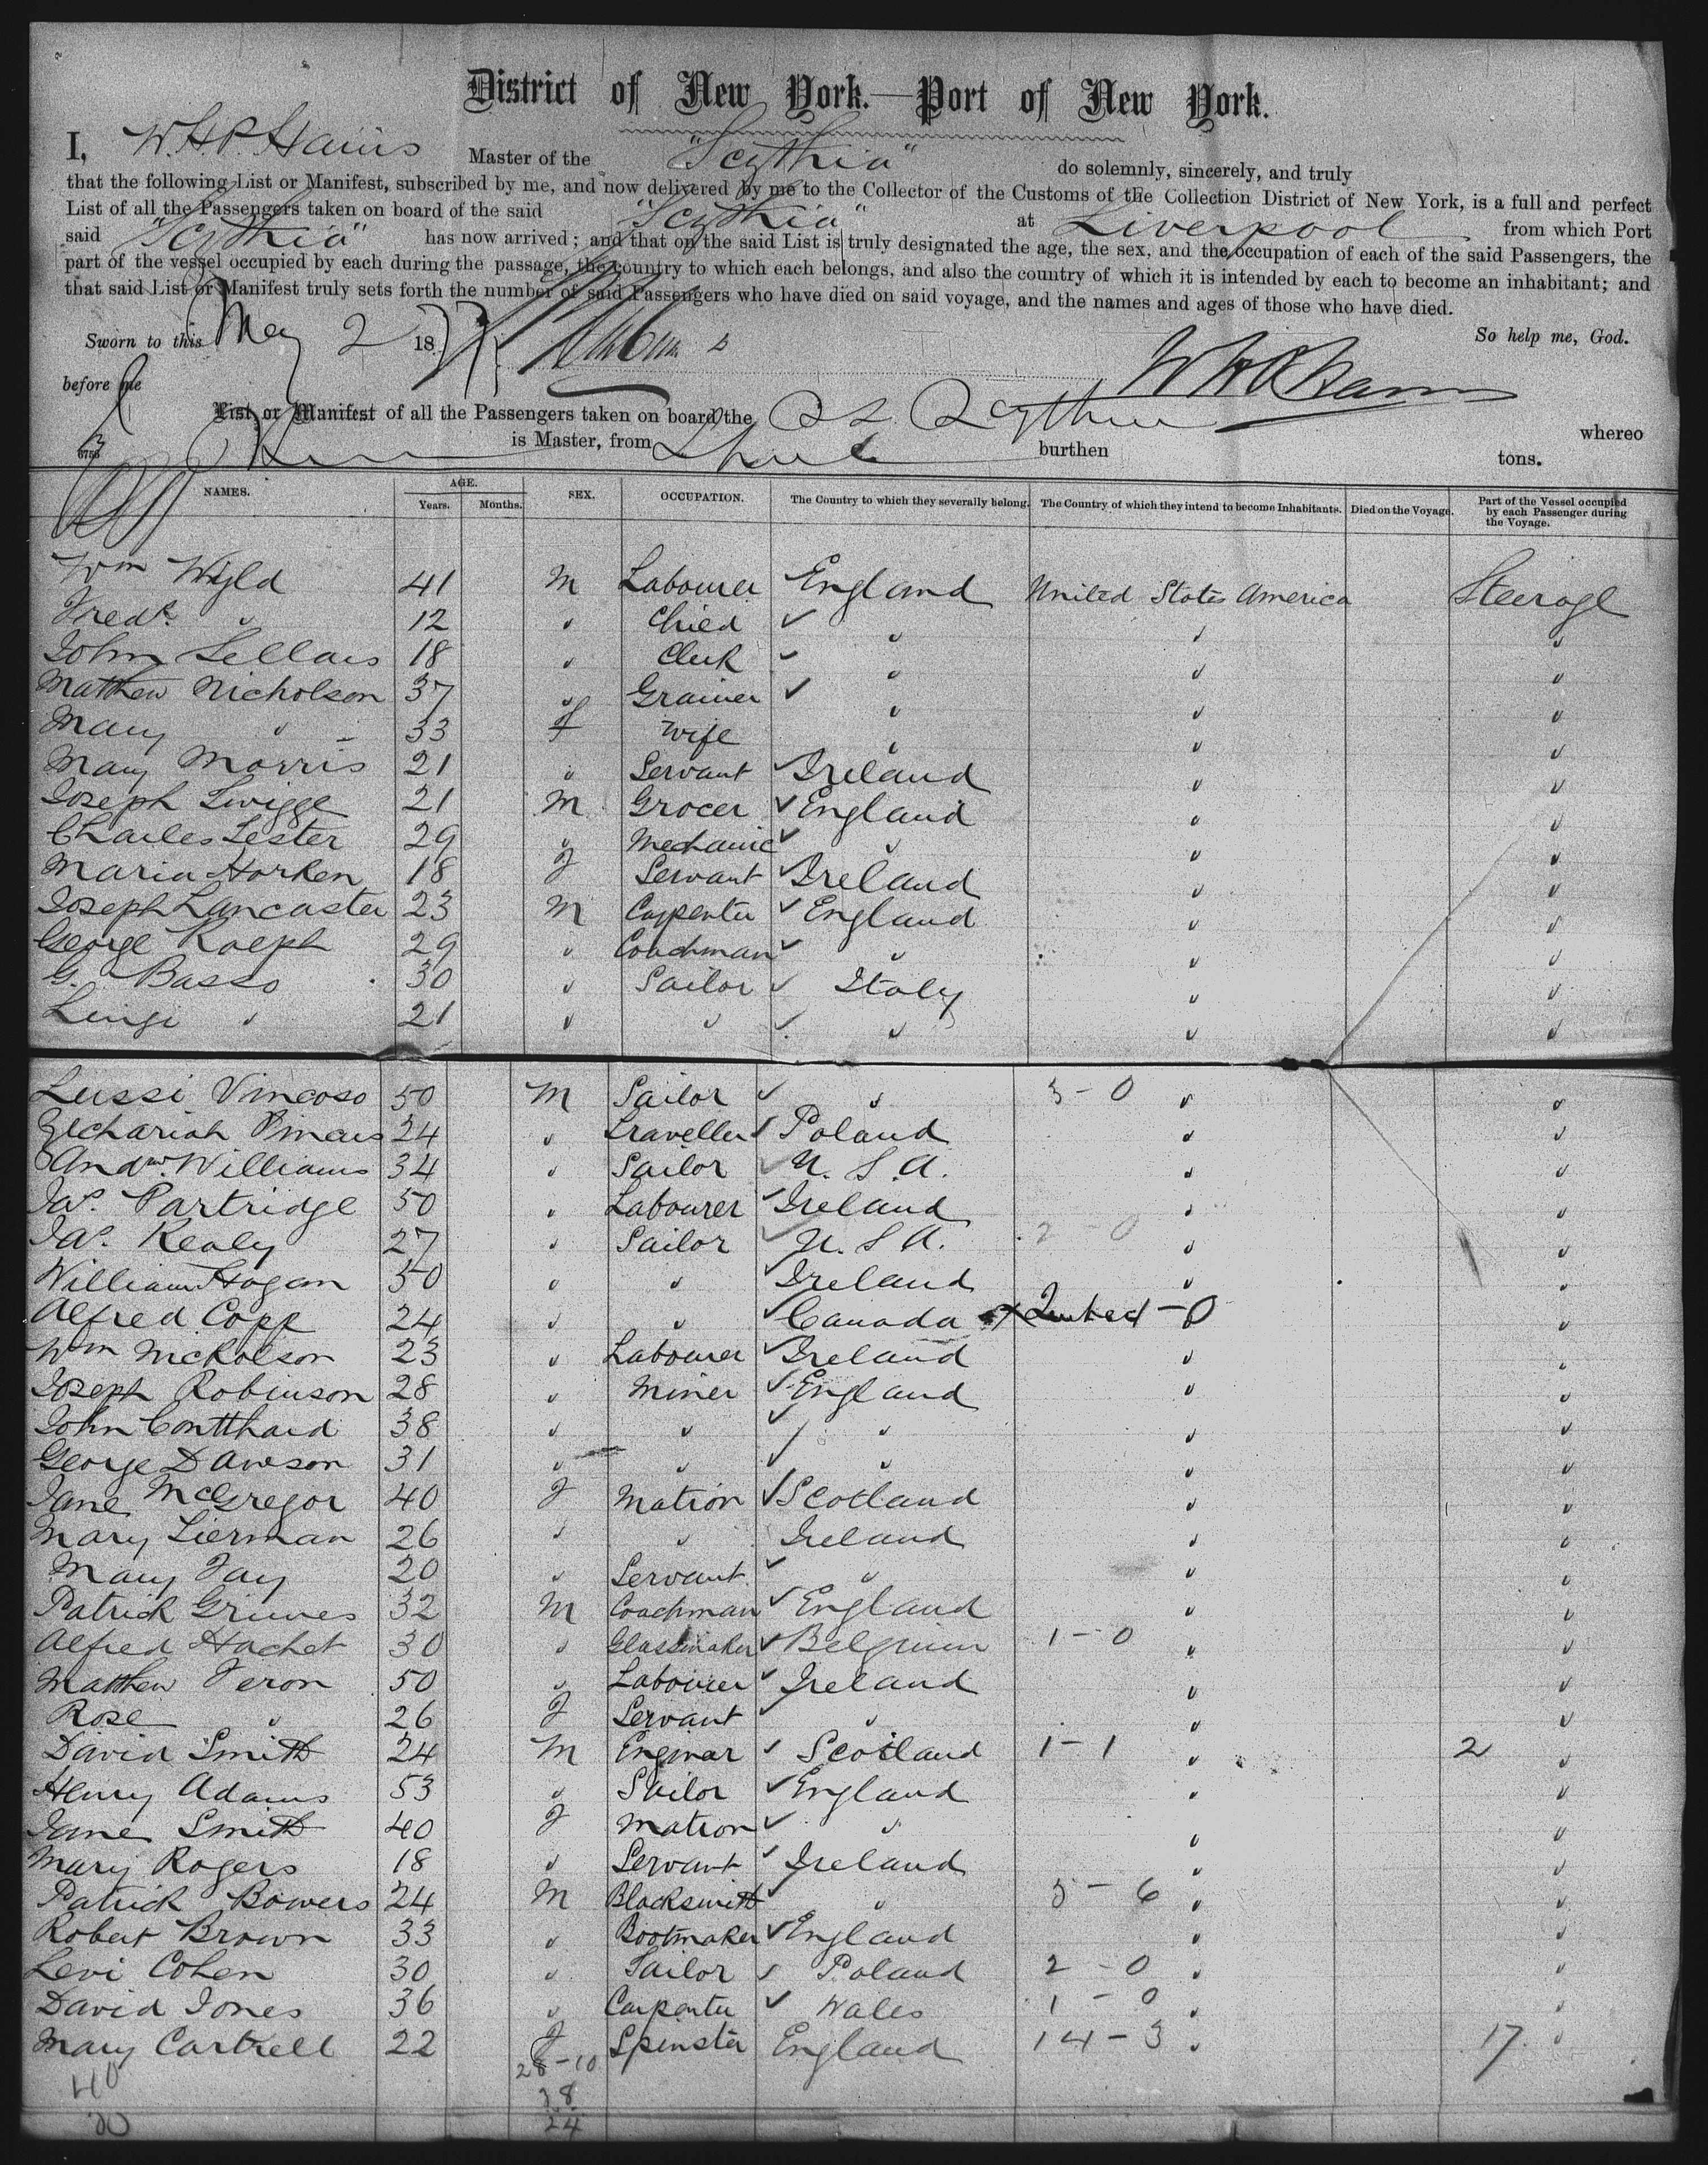 District of New York.—Port of New York.
I, W. H. P. Hains Master of the "Scythia" do solemnly, sincerely, and truly
that the following List or Manifest, subscribed by me, and now delivered by me to the Collector of the Customs of the Collection District of New York, is a full and perfect
List of all the Passengers taken on board of the said "Scythia" at Liverpool from which Port
said "Scythia" has now arrived; and that on the said List is truly designated the age, the sex, and the occupation of each of the said Passengers, the
part of the vessel occupied by each during the passage, the country to which each belongs, and also the country of which it is intended by each to become an inhabitant; and
that said List or Manifest truly sets forth the number of said Passengers who have died on said voyage, and the names and ages of those who have died.
Sworn to this May 2 18 So help me, God.
before me W H P Hains
List or Manifest of all the Passengers taken on board the SS Scythia whereo
is Master, from burthen tons.
NAMES. AGE. SEX. OCCUPATION. The Country to which they severally belong. The Country of which they intend to become Inhabitants. Died on the Voyage. Part of the Vessel occupied by each Passenger during the Voyage.
Years. Months.
Wm Wyld 41 M Labourer England United States America Steerage
Fredk. " 12 " Child ✓ " " "
John Sellars 18 " Clerk ✓ " " "
Matthew Nicholson 37 " Grainer ✓ " " "
Mary " 33 f Wife " " "
Mary Morris 21 " Servant ✓ Ireland " "
Joseph Swigge 21 M Grocer ✓ England " "
Charles Lester 29 " Mechanic ✓ " " "
Maria Horken 18 F Servant ✓ Ireland " "
Joseph Lancaster 23 M Carpenter ✓ England " "
George Ralph 29 " Coachman ✓ " " "
G. Basso 30 " Sailor ✓ Italy " "
Luigi " 21 " " ✓ " " "
Lussi Vincoso 50 M Sailor ✓ " 3-0 " "
Zechariah Pincus 24 " Traveller ✓ Poland " "
Andw. Williams 34 " Sailor ✓ U.S.A. " "
Jas. Partridge 50 " Labourer ✓ Ireland " "
Jas. Kealy 27 " Sailor ✓ U.S.A. 2-0 " "
William Hogan 50 " " ✓ Ireland " "
Alfred Copp 24 " " ✓ Canada - 0 "
Wm Nicholson 23 " Labourer ✓ Ireland " "
Joseph Robinson 28 " Miner ✓ England " "
John Contthard 38 " " ✓ " " "
George Dawson 31 " " ✓ " " "
Jane McGregor 40 F Matron ✓ Scotland " "
Mary Lierman 26 " " Ireland " "
Mary Fay 20 " Servant ✓ " " "
Patrick Grimes 32 M Coachman ✓ England " "
Alfred Hachet 30 " Glassmaker ✓ Belgium 1-0 " "
Matthew Feron 50 " Labourer ✓ Ireland " "
Rose " 26 F Servant ✓ " " "
David Smith 24 M Enginar ✓ Scotland 1-1 " 2 "
Henry Adams 53 " Sailor ✓ England " "
Jane Smith 40 F Matron ✓ " " "
Mary Rogers 18 " Servant ✓ Ireland " "
Patrick Bowers 24 M Blacksmith ✓ " 5-6 " "
Robert Brown 33 " Bootmaker ✓ England " "
Levi Cohen 30 " Tailor ✓ Poland 2-0 " "
David Jones 36 " Carpenter ✓ Wales 1-0 " "
Mary Cartrell 22 F Spinster England 14-3 " 17. "
40 28-10
20 38
24